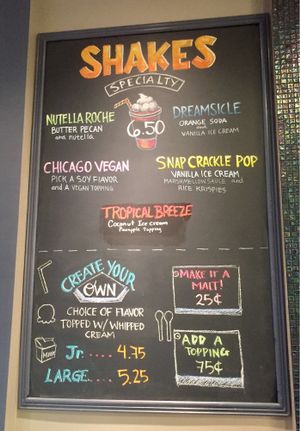 SHAKES
SPECIALTY
NUTELLA ROCHE
BUTTER PECAN
and nutella
6.50
DREAMSICLE
ORANGE SODA
and
VANILLA ICE CREAM
CHICAGO VEGAN
PICK A SOY FLAVOR
and A VEGAN TOPPING
SNAP CRACKLE POP
VANILLA ICE CREAM
MARSHMELLOW SAUCE and
RICE KRISPIES
TROPICAL BREEZE
Coconut Ice cream
Pineapple Topping
CREATE YOUR
OWN
CHOICE OF FLAVOR
TOPPED W/ WHIPPED
CREAM
Jr. .... 4.75
LARGE.... 5.25
MAKE IT A
MALT!
25¢
ADD A
TOPPING
75¢